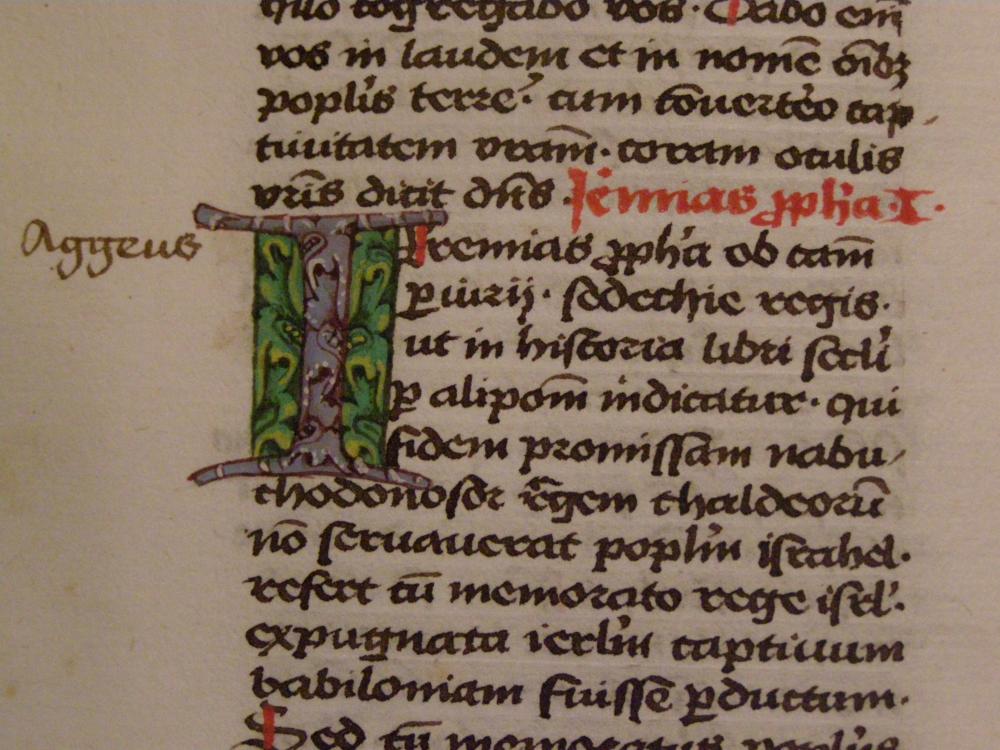 quo cōgregabo vos. Dabo em̄
vos in laudem et in nomē oībꝫ
popl'is terre. cum cōuertēo cap-
tiuitatem vr̄am. coram oculis
vr̄is dicit dn̄s. Jēmias ꝓph'a. I.
Aggeus
Iremias ꝓph'a ob cām
ꝑiurij. sedechie regis.
ut in historia libri scd'i
ꝑalipom̄ indicatur. qui
fidem promissam nabu-
chodonosor regem chaldeorū
nō seruauerat popl'm israhel.
refert cū memorato rege isrl'.
expugnata ierl'm captiuum
babiloniam fuisse ꝑductum.
Sed cū memoratus